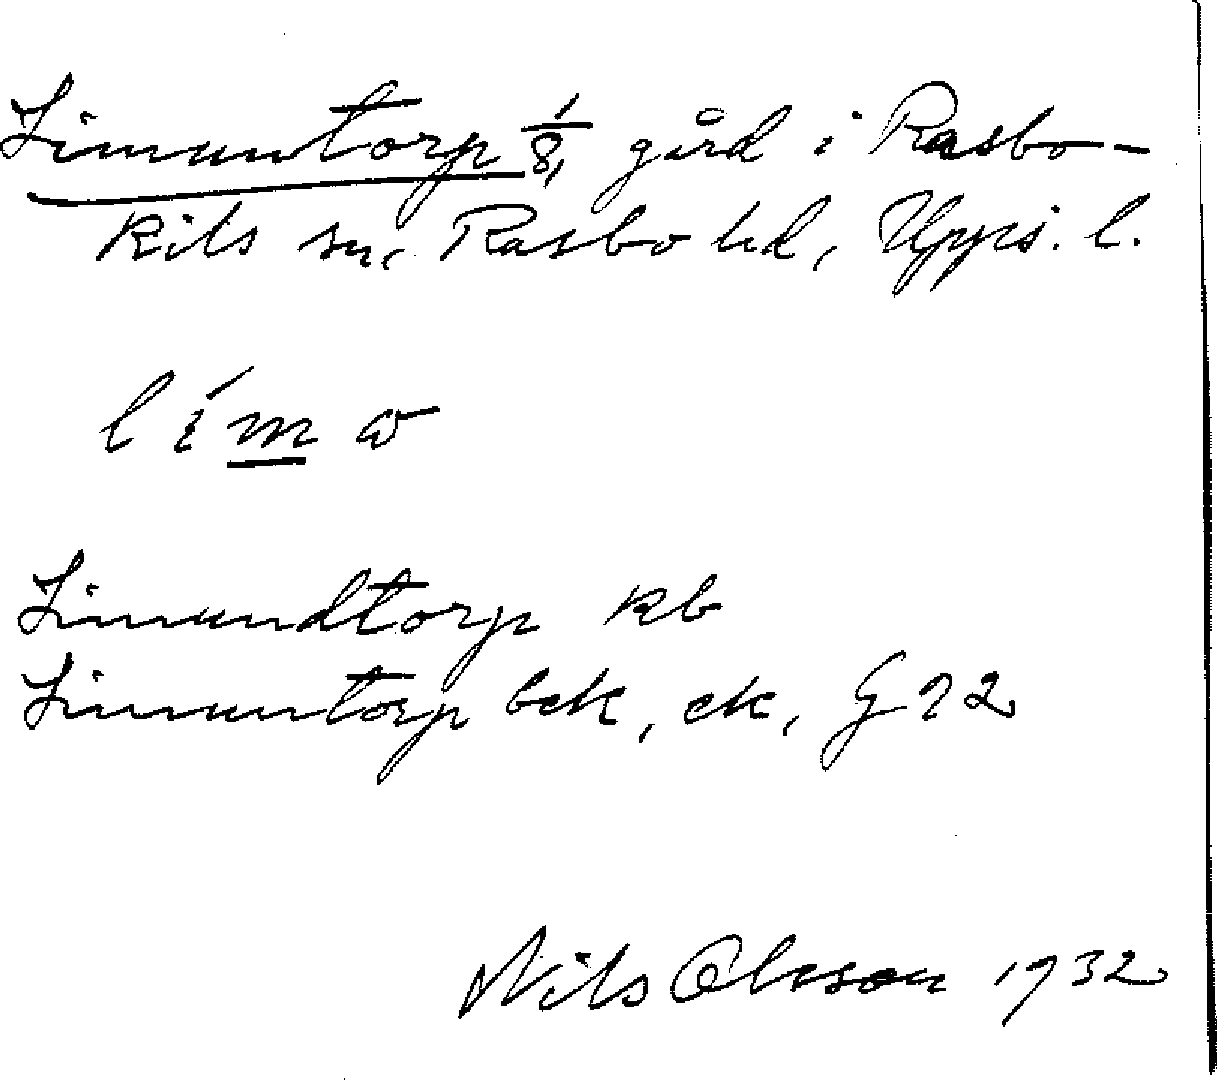 Limuntorp 1/8, gård i Rasbo-
kils sn, Rasbo hd, Upps. l.
límω
Limundtorp kb
Limuntorp bek, ek, G 22
Nils Olsson 1932